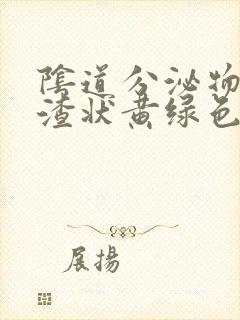 陰道分泌物
渣状黄绿色
展揚